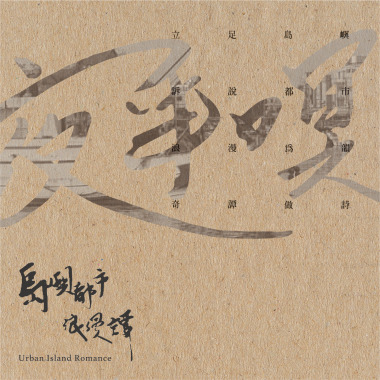 立足島嶼
訴說都市
浪漫為
奇譚做詩
島嶼都市
浪漫譚
Urban Island Romance